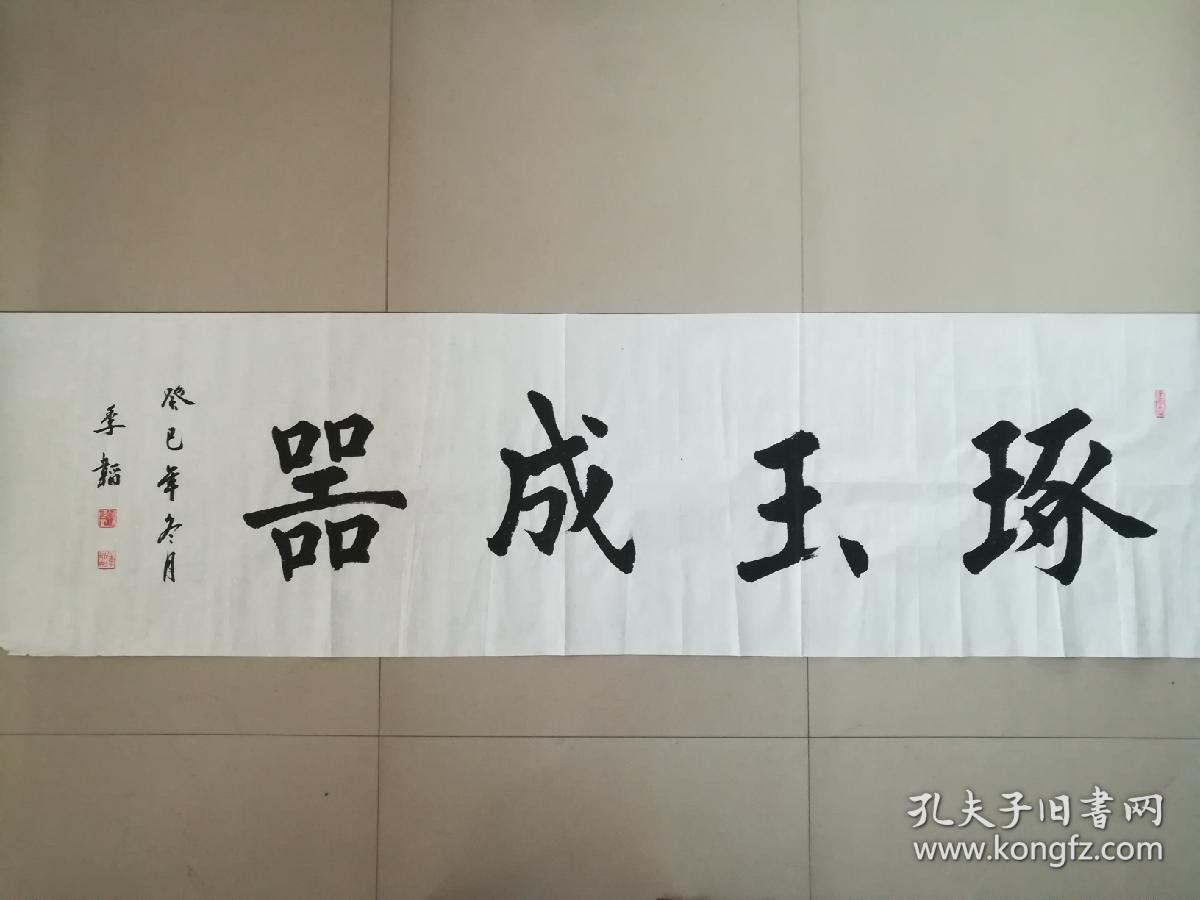 琢玉成器
癸巳年冬月
季韜
孔夫子旧書网
www.kongfz.com